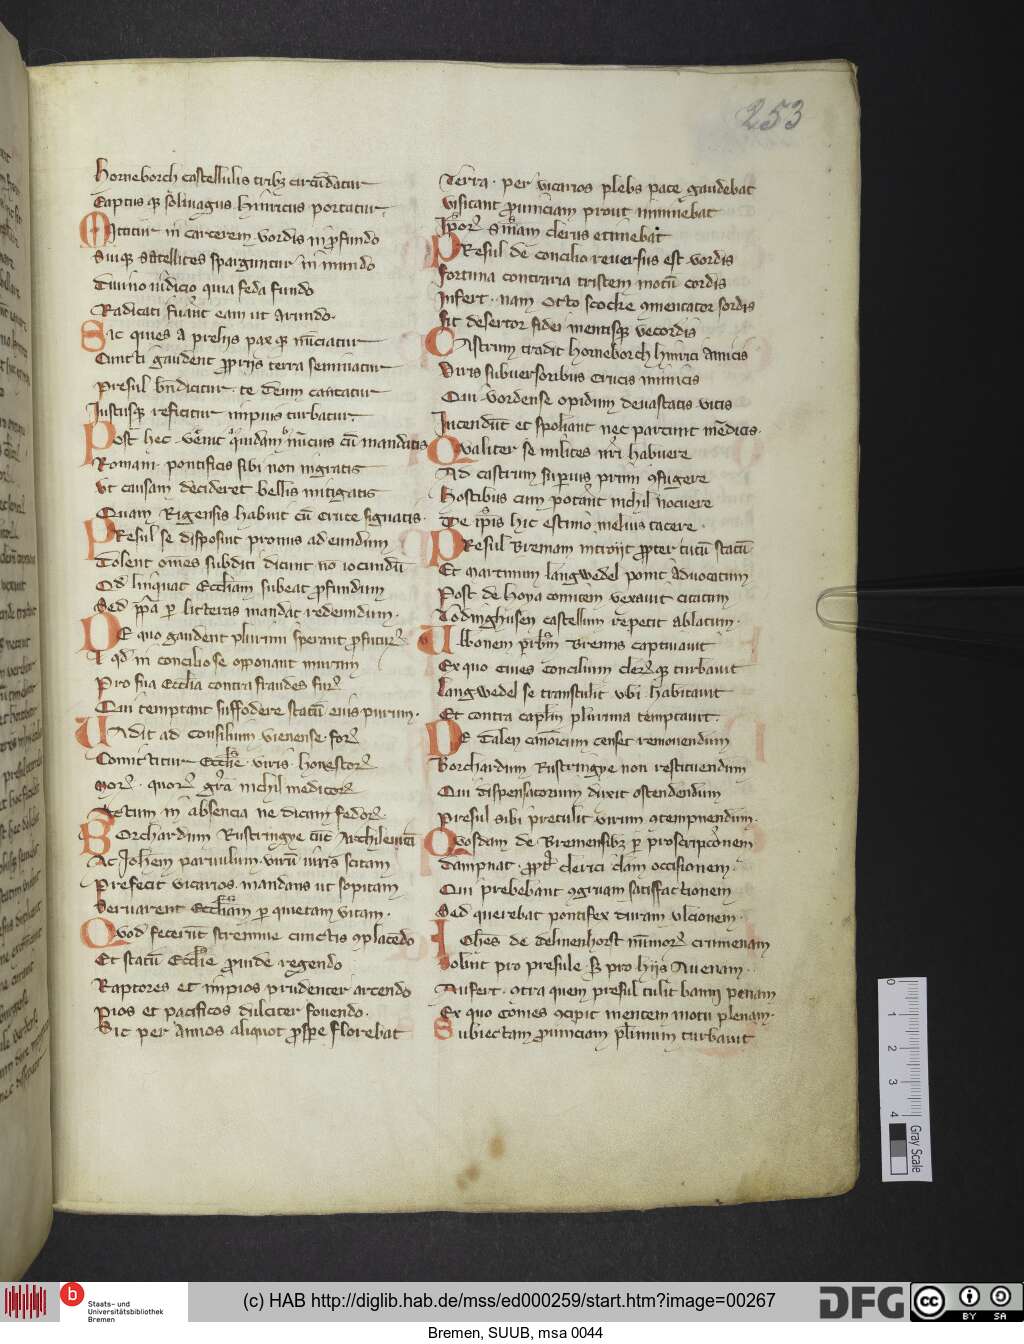 253
Horneborch castellulis tribꝫ circūdatur
Captus qꝫ solivagus hinricus portatur
Mittitur in carcerem vordis in ꝓfundo
Suiqꝫ satellites sparguntur in mundo
Divino iudicio quia feda fundo
Radicati fuerāt eam ut arundo
Sic quies a prelijs pax qꝫ nūciatur
Cuncti gaudent ꝓprijs terra seminatur
Presul bn̄dicitur te deum cantatur
Justusqꝫ reficitur impius turbatur
Post hec venit quidam nūcius cū mandatis
Romani pontificis sibi non ingratis
Ut causam decideret bellis mitigatis
Quam Rigensis habuit cū cruce signatis
Presul se disposuit pronus ad eundum
Dolent om̄es subditi dicunt nō iocundū
Qd̄ linquat eccl̄iam subeat ꝓfundum
Sed ꝑ litteras mandat redeundum
De quo gaudent plurimi sperant ꝓfuturꝝ
qd̄ in concilio se opponant murum
Pro sua eccl̄ia contra fraudes furꝝ
Qui temptant suffodere statū eius purum
Vadit ad consilium vienense forꝝ
Comittitur eccl̄ie viris honestorꝝ
Morꝝ quorꝝ gr̄a nichil
in absencia ne dicam fedorꝝ
Borchardum Rustringye tūc
Ac Joh̄em parvulum virū iuris scitam
Prefecit vicarios mandans ut sopitam
Servarent eccl̄iam ꝑ quietam vitam
Quod fecerūt strennue cunctis ꝯplacēdo
Et statū eccl̄ie ꝓvide regendo
Raptores et impios prudenter arcendo
Pios et pacificos dulciter fovendo
Sic per annos aliquot ꝓspe florebat
Terra per vicarios plebs pace gaudebat
Visitant ꝓvinciam prout imminebat
clerus etinnebat
Presul de concilio reversus est vordis
Fortuna contraria tristem motū cordis
Infert nam Otto scocke ꝯmentator sordis
Fit desertor fidei mentisqꝫ vecordis
Castrum tradit horneborch hinrici amicis
Viris subversoribus crucis inimicis
Qui vordense opidum devastatis vicis
Incendūt et spoliant nec parcunt mēdicis
Qualiter se milites nr̄i habuere
Ad castrum superius primi ꝯfugere
Hostibus cum potuerāt nichil nocuere
De ip̄is hic estimo melius tacere
Presul Bremam introijt ꝓpter tutū statū
Et martinum langwedel ponit advocatum
Post de hoya comitem vexavit citatum
Tōdinghusen castellum repetit ablatum
Ubbonem pr̄bm̄ Bremis captivavit
Ex quo cives concilium clerꝝ qꝫ turbavit
Langwedel se transtulit ubi habitavit
Et contra capl̄m plurima temptavit
De Talen canōicum censet removendum
Borchardum Rustringye non restituendum
Qui dispensatorum duxit ostendendum
Presul sibi pretulit virum ꝯtempnendum
Quosdam de Bremensibꝫ ꝑ proscripcōnem
Dampnat ꝓpter clerici clam occisionem
Qui prebebant ꝯgruam satisfactionem
Sed querebat pontifex duram ulcionem
Joh̄es de delmenhorst nūmorꝝ crumenam
Solvit pro presule sꝫ pro hijs avenam
Aufert ꝯtra quem presul tulit banni penam
Ex quo comes ꝯcipit mentem motu plenam
Subiectam ꝓvinciam pl̄imum turbavit
0
1
2
3
4
Gray Scale
b Staats- und Universitätsbibliothek Bremen
(c) HAB http://diglib.hab.de/mss/ed000259/start.htm?image=00267
DFG
cc BY SA
Bremen, SUUB, msa 0044